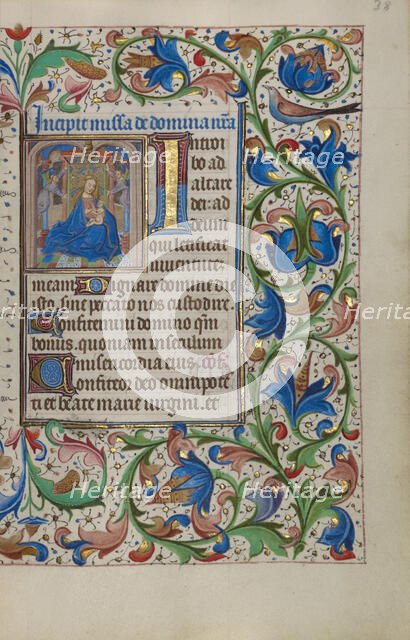 38
Incipit missa de domina nr̃a
Introi
bo ad
altare
dei: ad
deum
qui letificat
iuventutē
meam Dignare domine die
isto sine peccato nos custodire
Confitemini domino qm̄
bonus. quoniam in seculum
misericordia eius. cōf
Confiteor deo omnipotē
ti et beate marie virgini. et
Heritage
Heritage
Heritage
Heritage
Heritage
Heritage
Heritage
Heritage